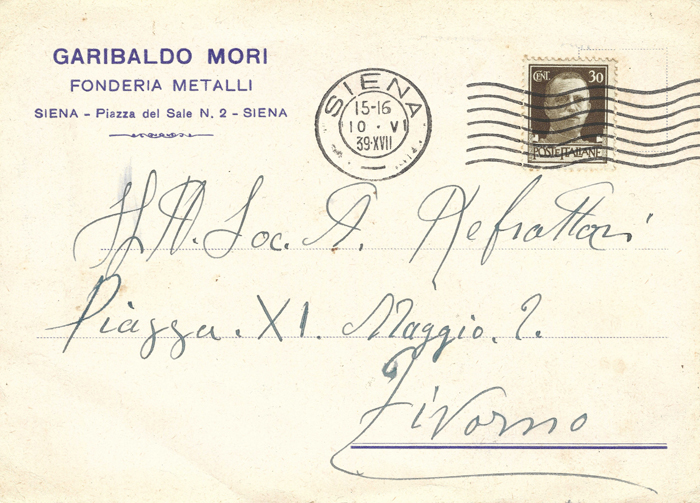 GARIBALDO MORI
FONDERIA METALLI
SIENA - Piazza del Sale N. 2 - SIENA
SIENA
15-16
10 · VI
39·XVII
CENT. 30
POSTE ITALIANE
Soc. A. Refrattari
Piazza. XI. Maggio. 2.
Livorno